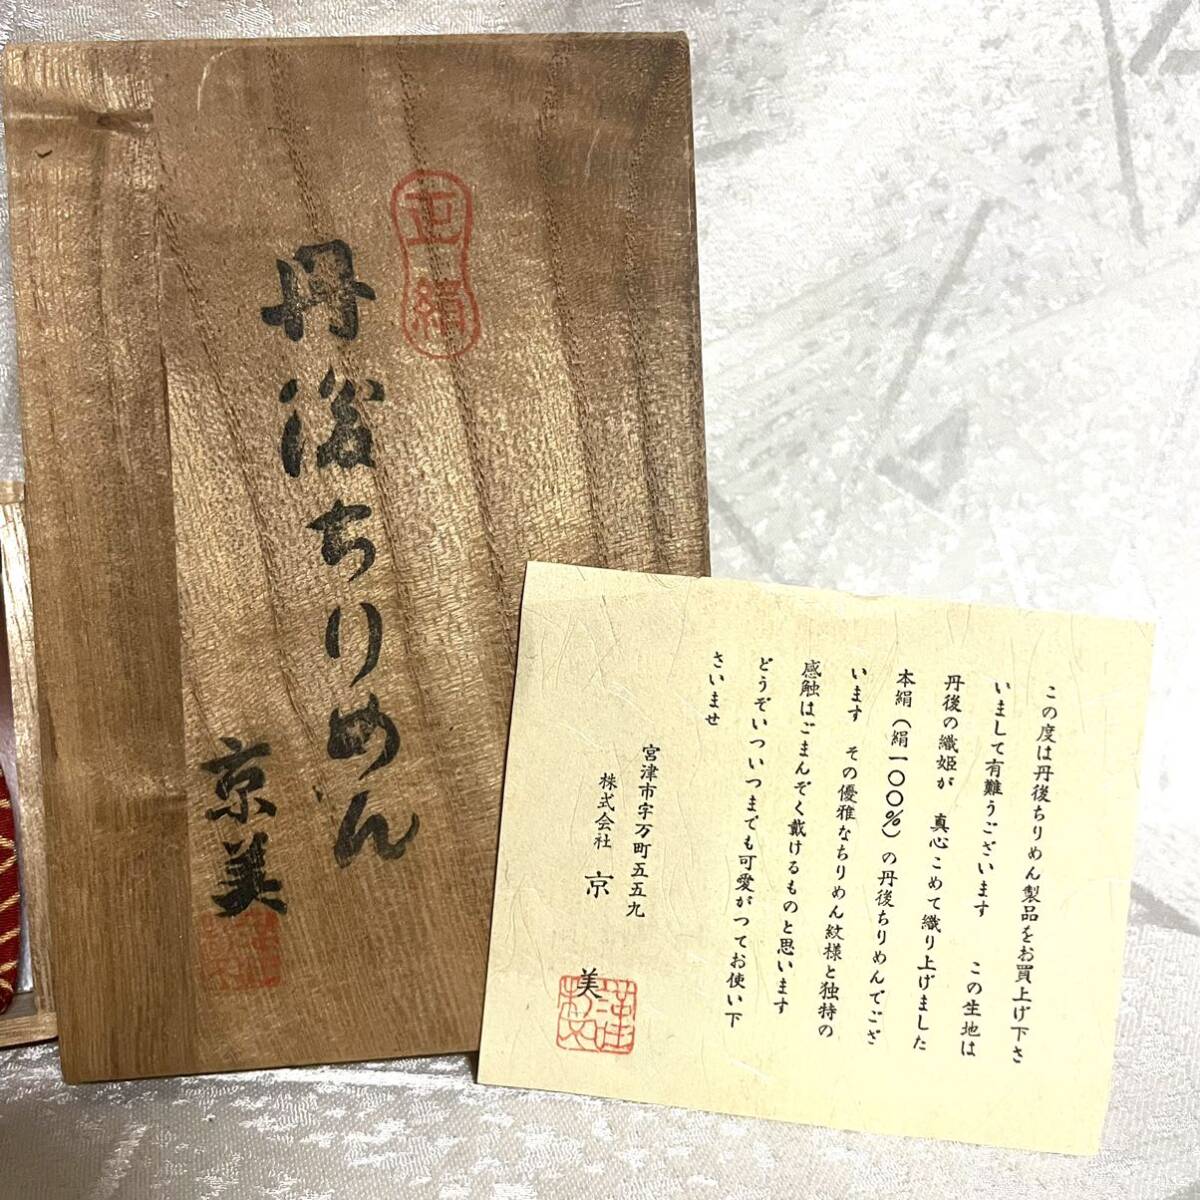 正絹
丹後ちりめん
京美
この度は丹後ちりめん製品をお買上げ下さ
いまして有難うございます　この生地は
丹後の織姫が　真心こめて織り上げました
本絹（絹一〇〇％）の丹後ちりめんでござ
います　その優雅なちりめん紋様と独特の
感触はごまんぞく戴けるものと思います
どうぞいついつまでも可愛がってお使い下
さいませ
宮津市字万町五五九
株式会社　京　美